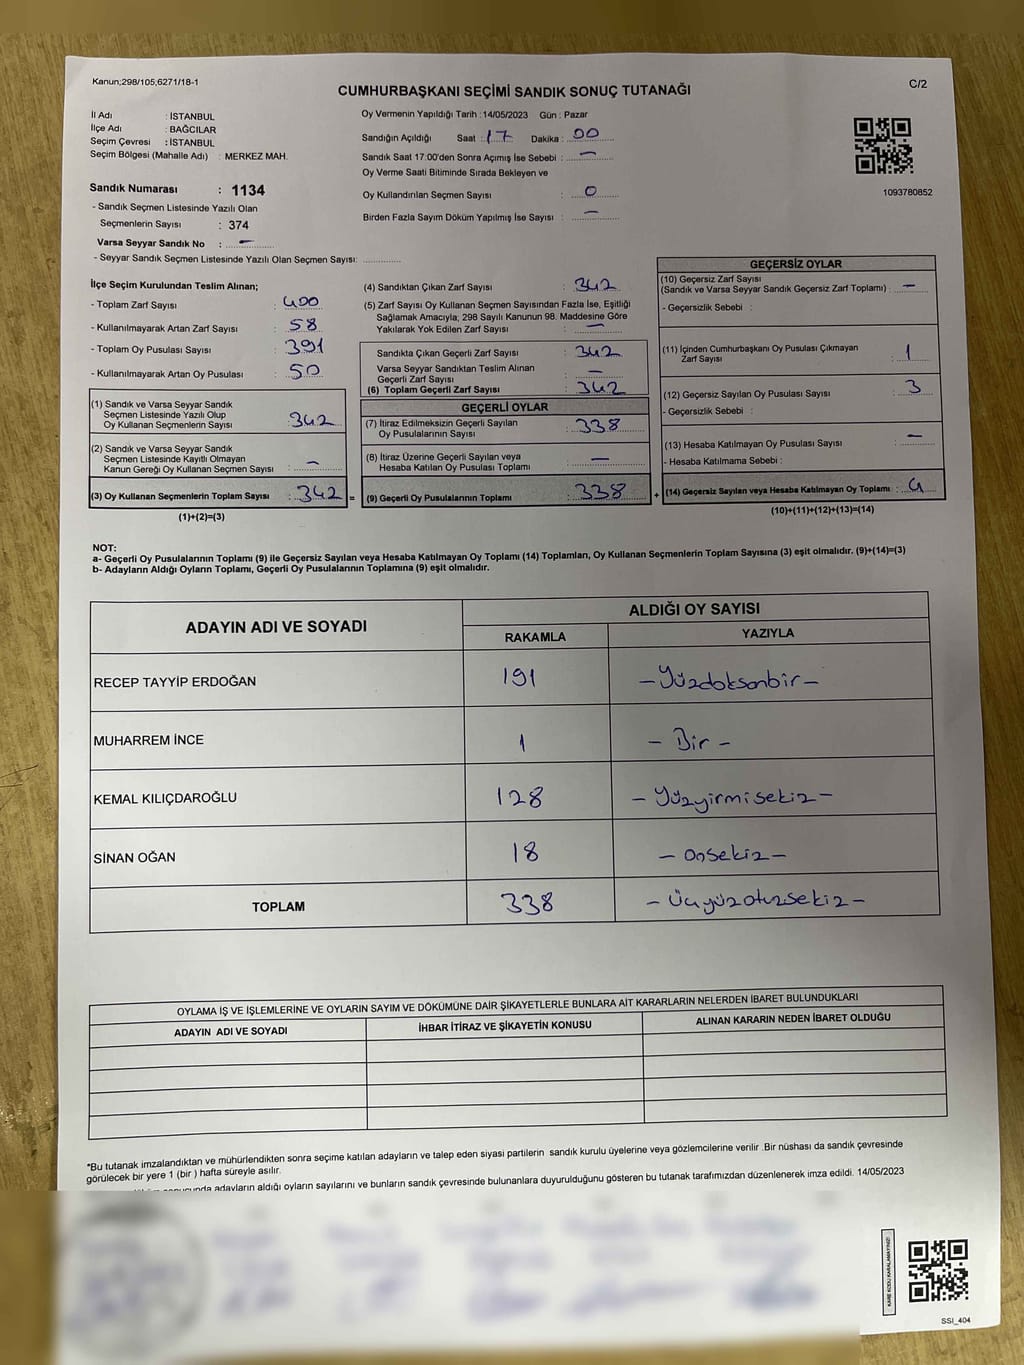 Kanun;298/105,6271/18-1
C/2
CUMHURBAŞKANI SEÇİMİ SANDIK SONUÇ TUTANAĞI
İl Adı : İSTANBUL
İlçe Adı : BAĞCILAR
Seçim Çevresi : İSTANBUL
Seçim Bölgesi (Mahalle Adı) : MERKEZ MAH.
Sandık Numarası : 1134
- Sandık Seçmen Listesinde Yazılı Olan
Seçmenlerin Sayısı : 374
Varsa Seyyar Sandık No : –
- Seyyar Sandık Seçmen Listesinde Yazılı Olan Seçmen Sayısı: ..............
Oy Vermenin Yapıldığı Tarih :14/05/2023 Gün : Pazar
Sandığın Açıldığı Saat : 17 Dakika : 00
Sandık Saat 17:00'den Sonra Açımış İse Sebebi : –
Oy Verme Saati Bitiminde Sırada Bekleyen ve
Oy Kullandırılan Seçmen Sayısı : 0
Birden Fazla Sayım Döküm Yapılmış İse Sayısı : –
1093780852
İlçe Seçim Kurulundan Teslim Alınan;
- Toplam Zarf Sayısı : 400
- Kullanılmayarak Artan Zarf Sayısı : 58
- Toplam Oy Pusulası Sayısı : 391
- Kullanılmayarak Artan Oy Pusulası : 50
(1) Sandık ve Varsa Seyyar Sandık
Seçmen Listesinde Yazılı Olup
Oy Kullanan Seçmenlerin Sayısı : 342
(2) Sandık ve Varsa Seyyar Sandık
Seçmen Listesinde Kayıtlı Olmayan
Kanun Gereği Oy Kullanan Seçmen Sayısı : –
(3) Oy Kullanan Seçmenlerin Toplam Sayısı : 342 =
(1)+(2)=(3)
(4) Sandıktan Çıkan Zarf Sayısı : 342
(5) Zarf Sayısı Oy Kullanan Seçmen Sayısından Fazla İse, Eşitliği
Sağlamak Amacıyla; 298 Sayılı Kanunun 98. Maddesine Göre
Yakılarak Yok Edilen Zarf Sayısı : –
Sandıkta Çıkan Geçerli Zarf Sayısı : 342
Varsa Seyyar Sandıktan Teslim Alınan
Geçerli Zarf Sayısı : –
(6) Toplam Geçerli Zarf Sayısı : 342
GEÇERLİ OYLAR
(7) İtiraz Edilmeksizin Geçerli Sayılan
Oy Pusulalarının Sayısı : 338
(8) İtiraz Üzerine Geçerli Sayılan veya
Hesaba Katılan Oy Pusulası Toplamı : –
(9) Geçerli Oy Pusulalarının Toplamı : 338 +
GEÇERSİZ OYLAR
(10) Geçersiz Zarf Sayısı
(Sandık ve Varsa Seyyar Sandık Geçersiz Zarf Toplamı) : –
- Geçersizlik Sebebi :
(11) İçinden Cumhurbaşkanı Oy Pusulası Çıkmayan
Zarf Sayısı : 1
(12) Geçersiz Sayılan Oy Pusulası Sayısı : 3
- Geçersizlik Sebebi :
(13) Hesaba Katılmayan Oy Pusulası Sayısı : –
- Hesaba Katılmama Sebebi :
(14) Geçersiz Sayılan veya Hesaba Katılmayan Oy Toplamı : 4
(10)+(11)+(12)+(13)=(14)
NOT:
a- Geçerli Oy Pusulalarının Toplamı (9) ile Geçersiz Sayılan veya Hesaba Katılmayan Oy Toplamı (14) Toplamları, Oy Kullanan Seçmenlerin Toplam Sayısına (3) eşit olmalıdır. (9)+(14)=(3)
b- Adayların Aldığı Oyların Toplamı, Geçerli Oy Pusulalarının Toplamına (9) eşit olmalıdır.
ADAYIN ADI VE SOYADI
ALDIĞI OY SAYISI
RAKAMLA YAZIYLA
RECEP TAYYİP ERDOĞAN 191 –Yüzdoksanbir–
MUHARREM İNCE 1 – Bir –
KEMAL KILIÇDAROĞLU 128 – Yüzyirmisekiz–
SİNAN OĞAN 18 – Onsekiz–
TOPLAM 338 – Üçyüzotuzsekiz–
OYLAMA İŞ VE İŞLEMLERİNE VE OYLARIN SAYIM VE DÖKÜMÜNE DAİR ŞİKAYETLERLE BUNLARA AİT KARARLARIN NELERDEN İBARET BULUNDUKLARI
ADAYIN ADI VE SOYADI İHBAR İTİRAZ VE ŞİKAYETİN KONUSU ALINAN KARARIN NEDEN İBARET OLDUĞU
*Bu tutanak imzalandıktan ve mühürlendikten sonra seçime katılan adayların ve talep eden siyasi partilerin sandık kurulu üyelerine veya gözlemcilerine verilir .Bir nüshası da sandık çevresinde
görülecek bir yere 1 (bir ) hafta süreyle asılır.
adayların aldığı oyların sayılarını ve bunların sandık çevresinde bulunanlara duyurulduğunu gösteren bu tutanak tarafımızdan düzenlenerek imza edildi. 14/05/2023
KARE KODU KARALAMAYINIZ!
SSI_404